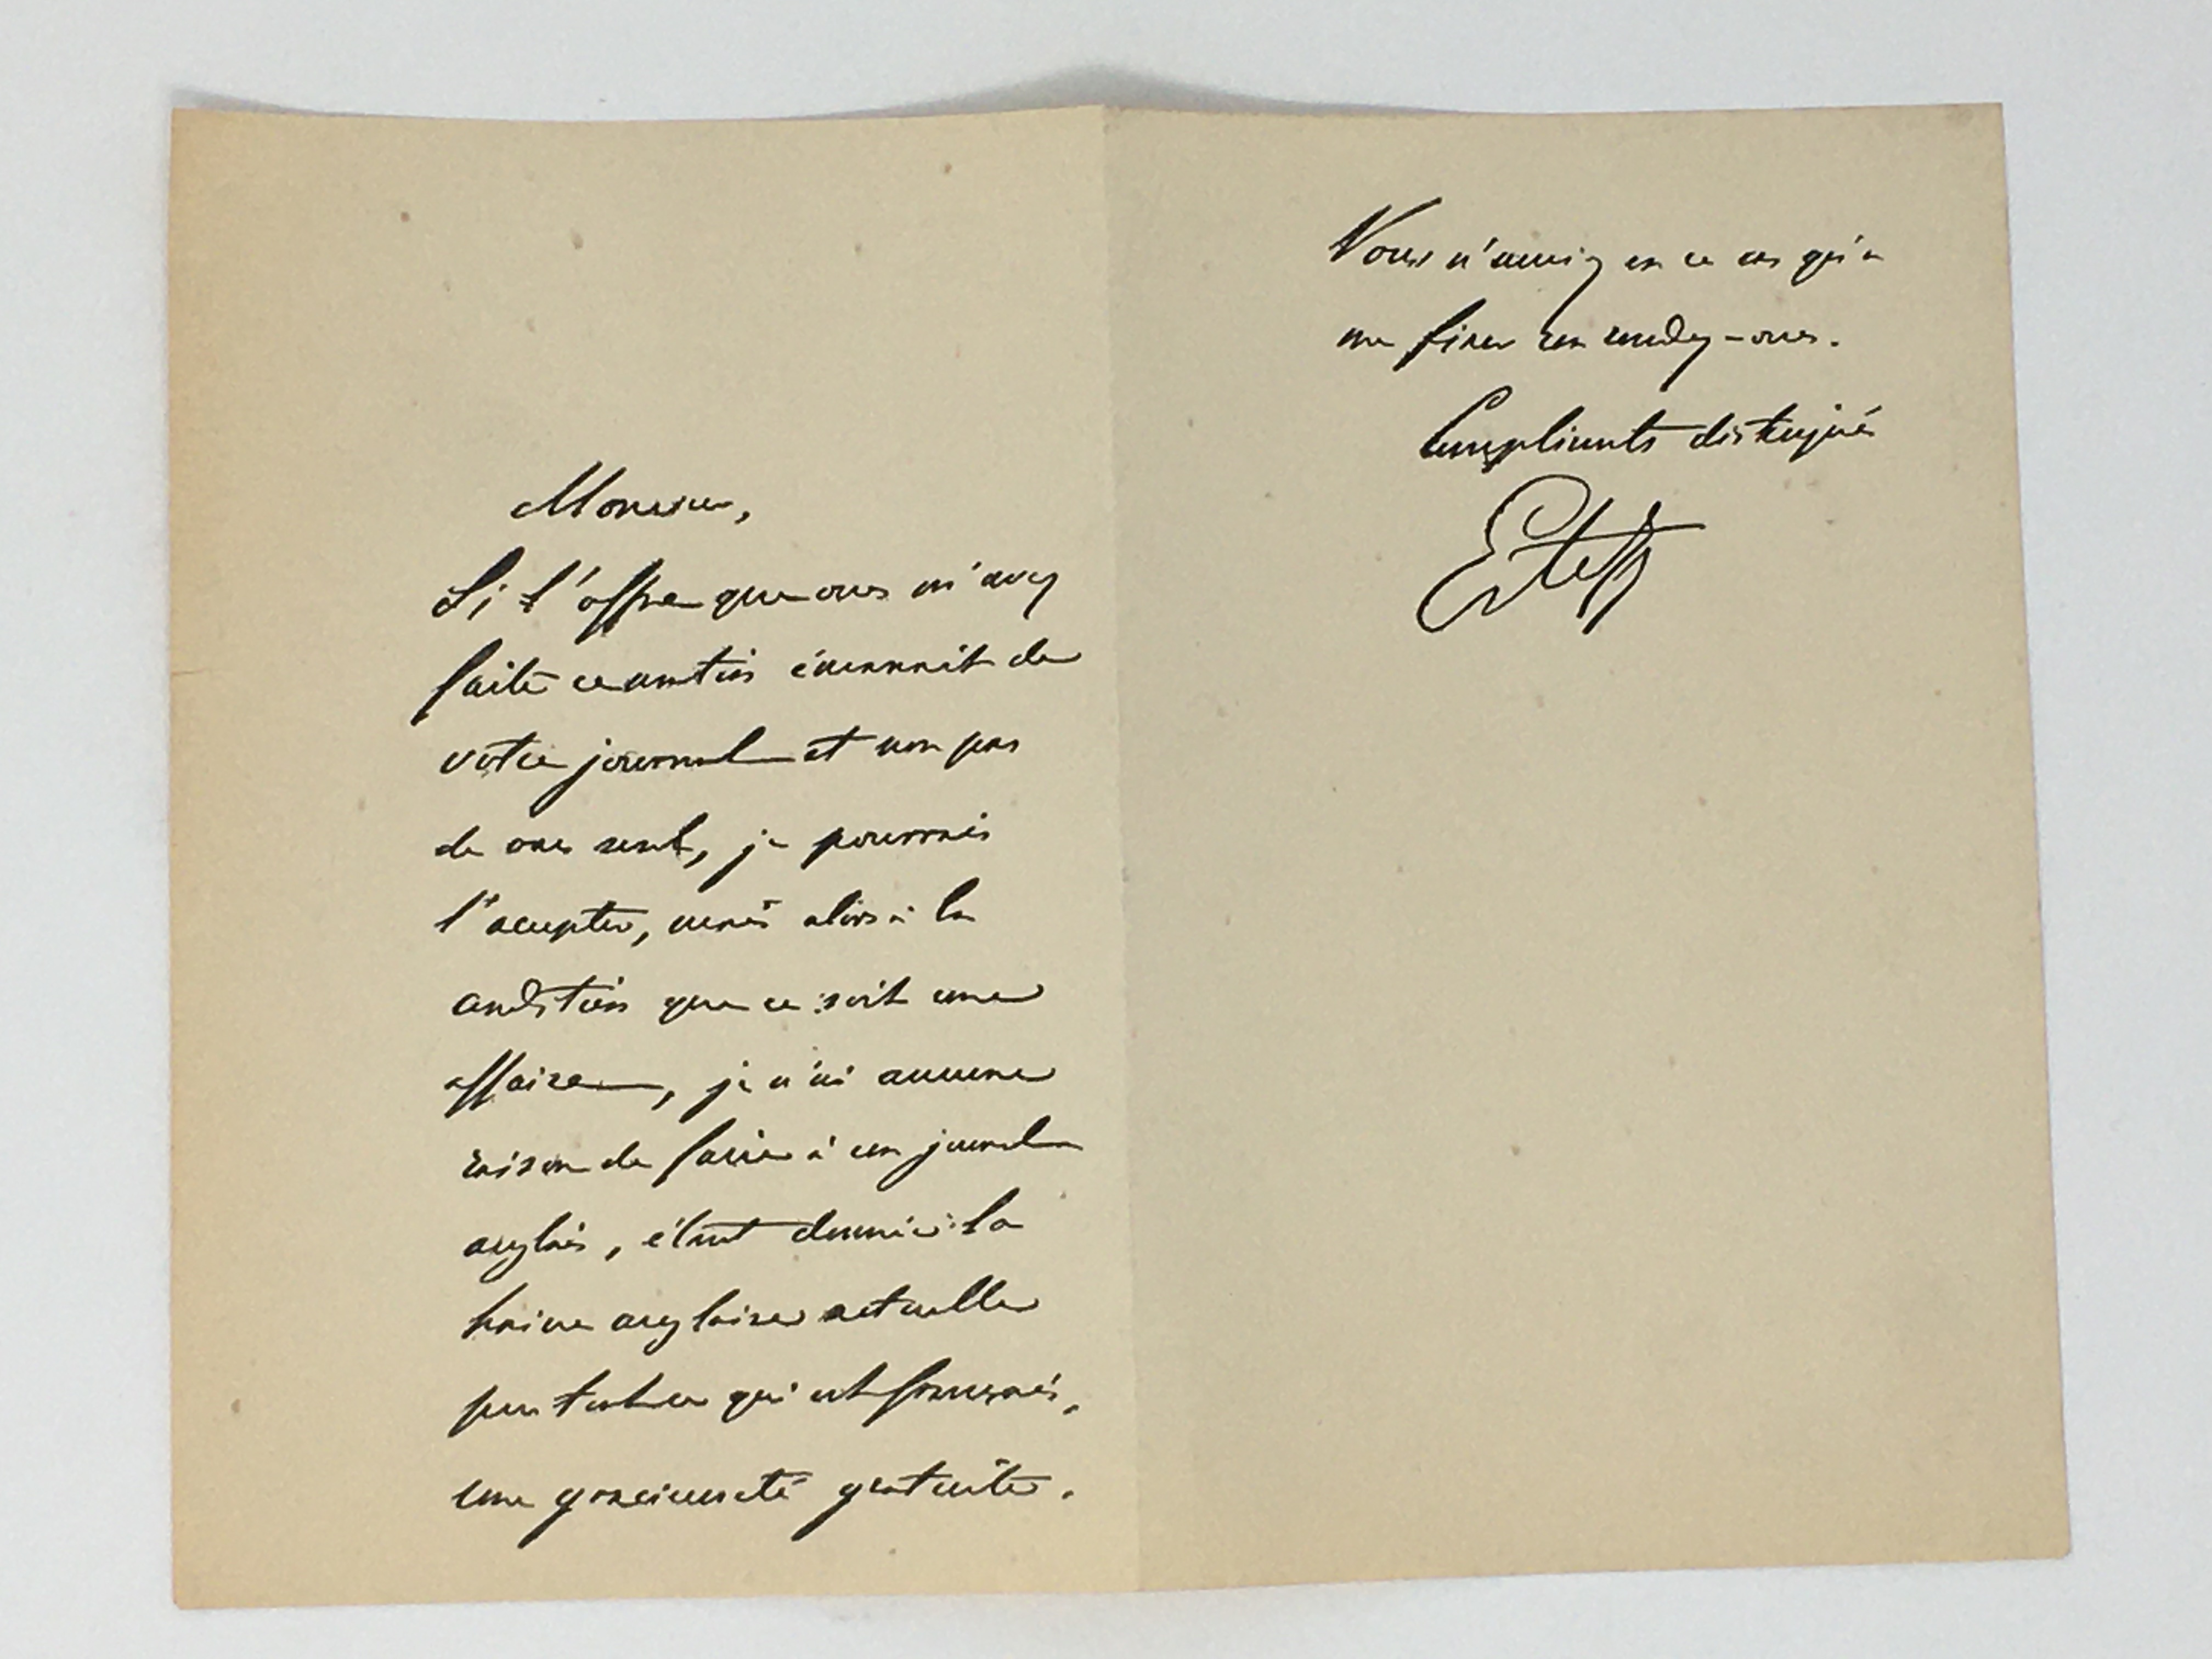 Monsieur,
Si l'offre que vous m'avez
faite ce matin émanait de
votre journal et non pas
de vous seul, je pourrais
l'accepter, mais alors à la
condition que ce soit une
affaire, je n'ai aucune
raison de faire à un journal
anglais, étant donnée la
haine anglaise actuelle
pour tout ce qui est français,
une gracieuseté gratuite.
Vous n'auriez en ce cas qu'à
me fixer un rendez-vous.
Compliments distingués